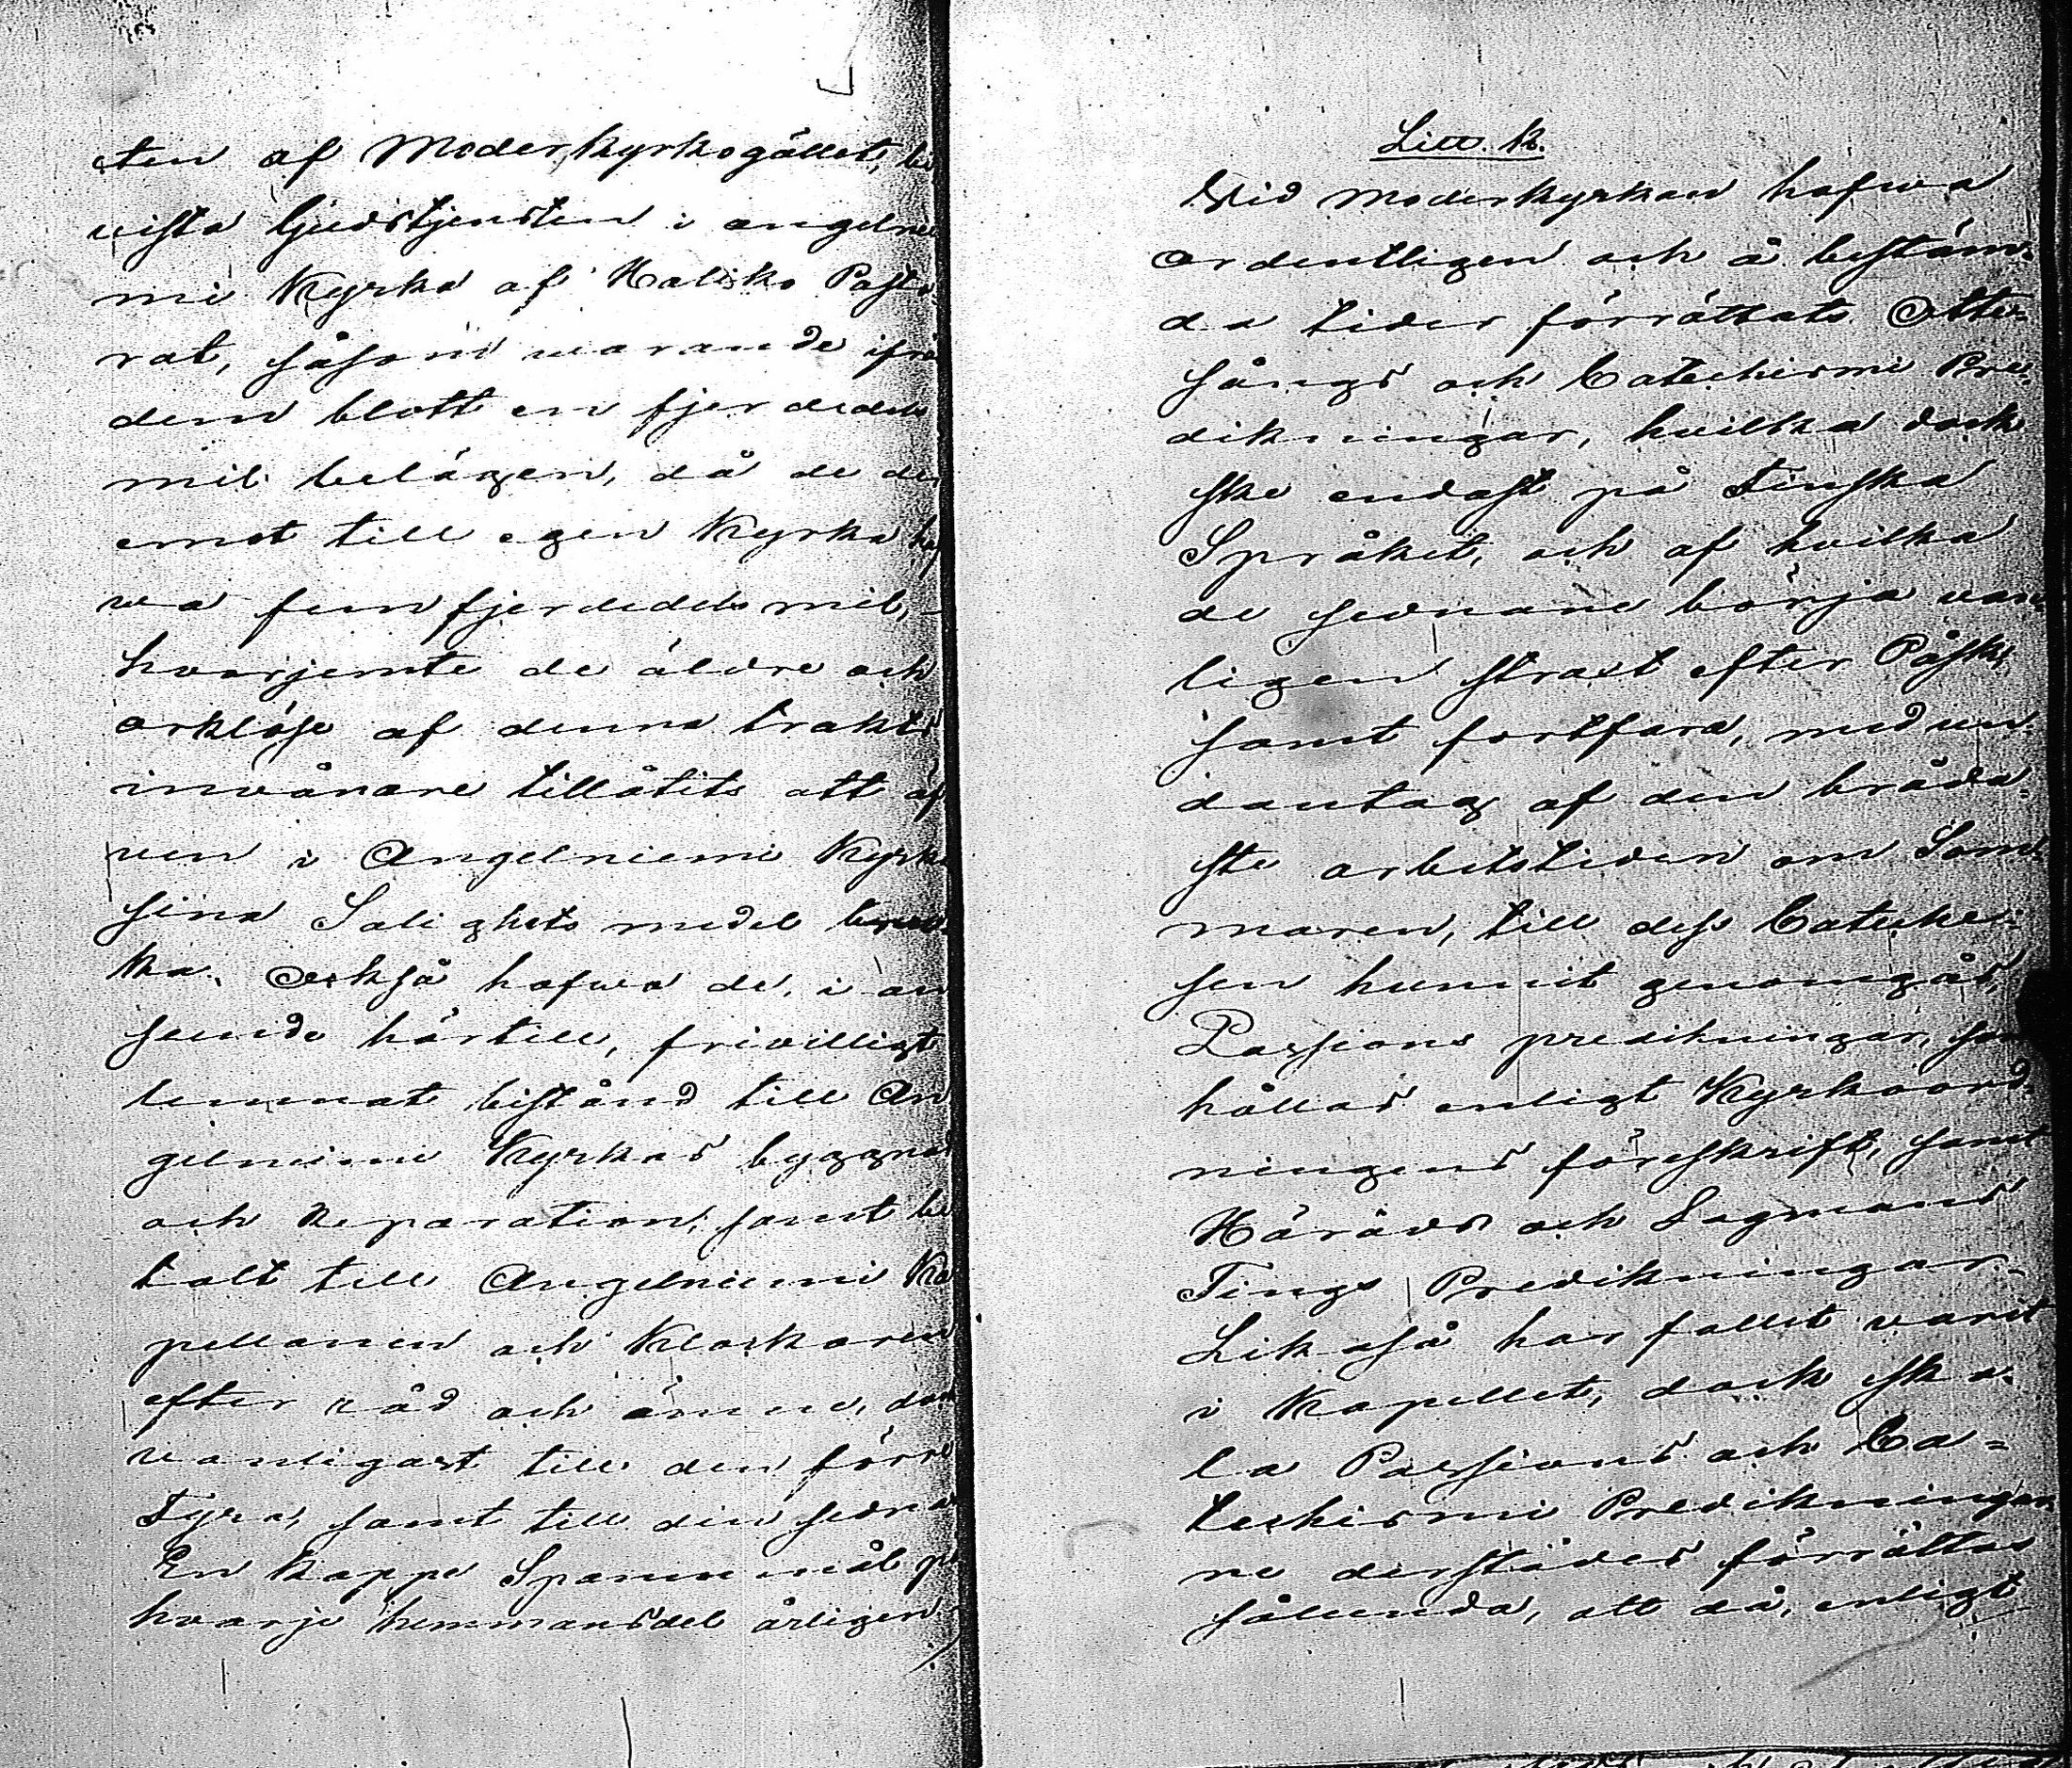 ten af Moderkyrkogället, be
vista Gudstjensten i angelnie
mi Kyrka af Haliko Pasto
rat, såsom warande ifrå
dem blott en fjerdedels
mil belägen, då de der
emot till egen Kyrka haf
wa fem fjerdedels mil,
hvarjemte de äldre och
orklöse af denna trakts
invånare tillåtits att äf
ven i Angelniemi Kyrka
sina Salighets medel bruu
ka. Också hafwa de, i an
seende härtill, frivilligt
lemnat bistånd till An
gelniemi Kyrkas byggnad
och Reparation, samt be
talt till Angelniemi Ka
pellanen och Klockaren
efter råd och ämne, dock
vanligast till den förre
Tyra, samt till den sedna
En kappe Spannmål på
hvarje hemmansdel årligen
Litt. K.
Wid Moderkyrkan hafwa
ordentligen och å bestäm-
da tider förrättats Otte-
sångs och Catechismi Pre-
dikningar, hvilka dock
ske endast på Finska
Språket, och af hvilka
de sednare börja van-
ligen straxt efter Påsk,
samt fortfara, med un-
dantag af den bråda-
ste arbetstiden om Som-
maren, till dess Cateche-
sen hunnit genomgås,
Passions predikningar, som
hållas enligt Kyrkoord-
ningens föreskrift, samt
Härads och Lagmans
Tings Predikningar.
Likaså har fallet varit
i Kapellet, dock sko-
la Passions och Ca-
techismi Predikningar
ne derstädes förrättas
sålunda, att då, enligt